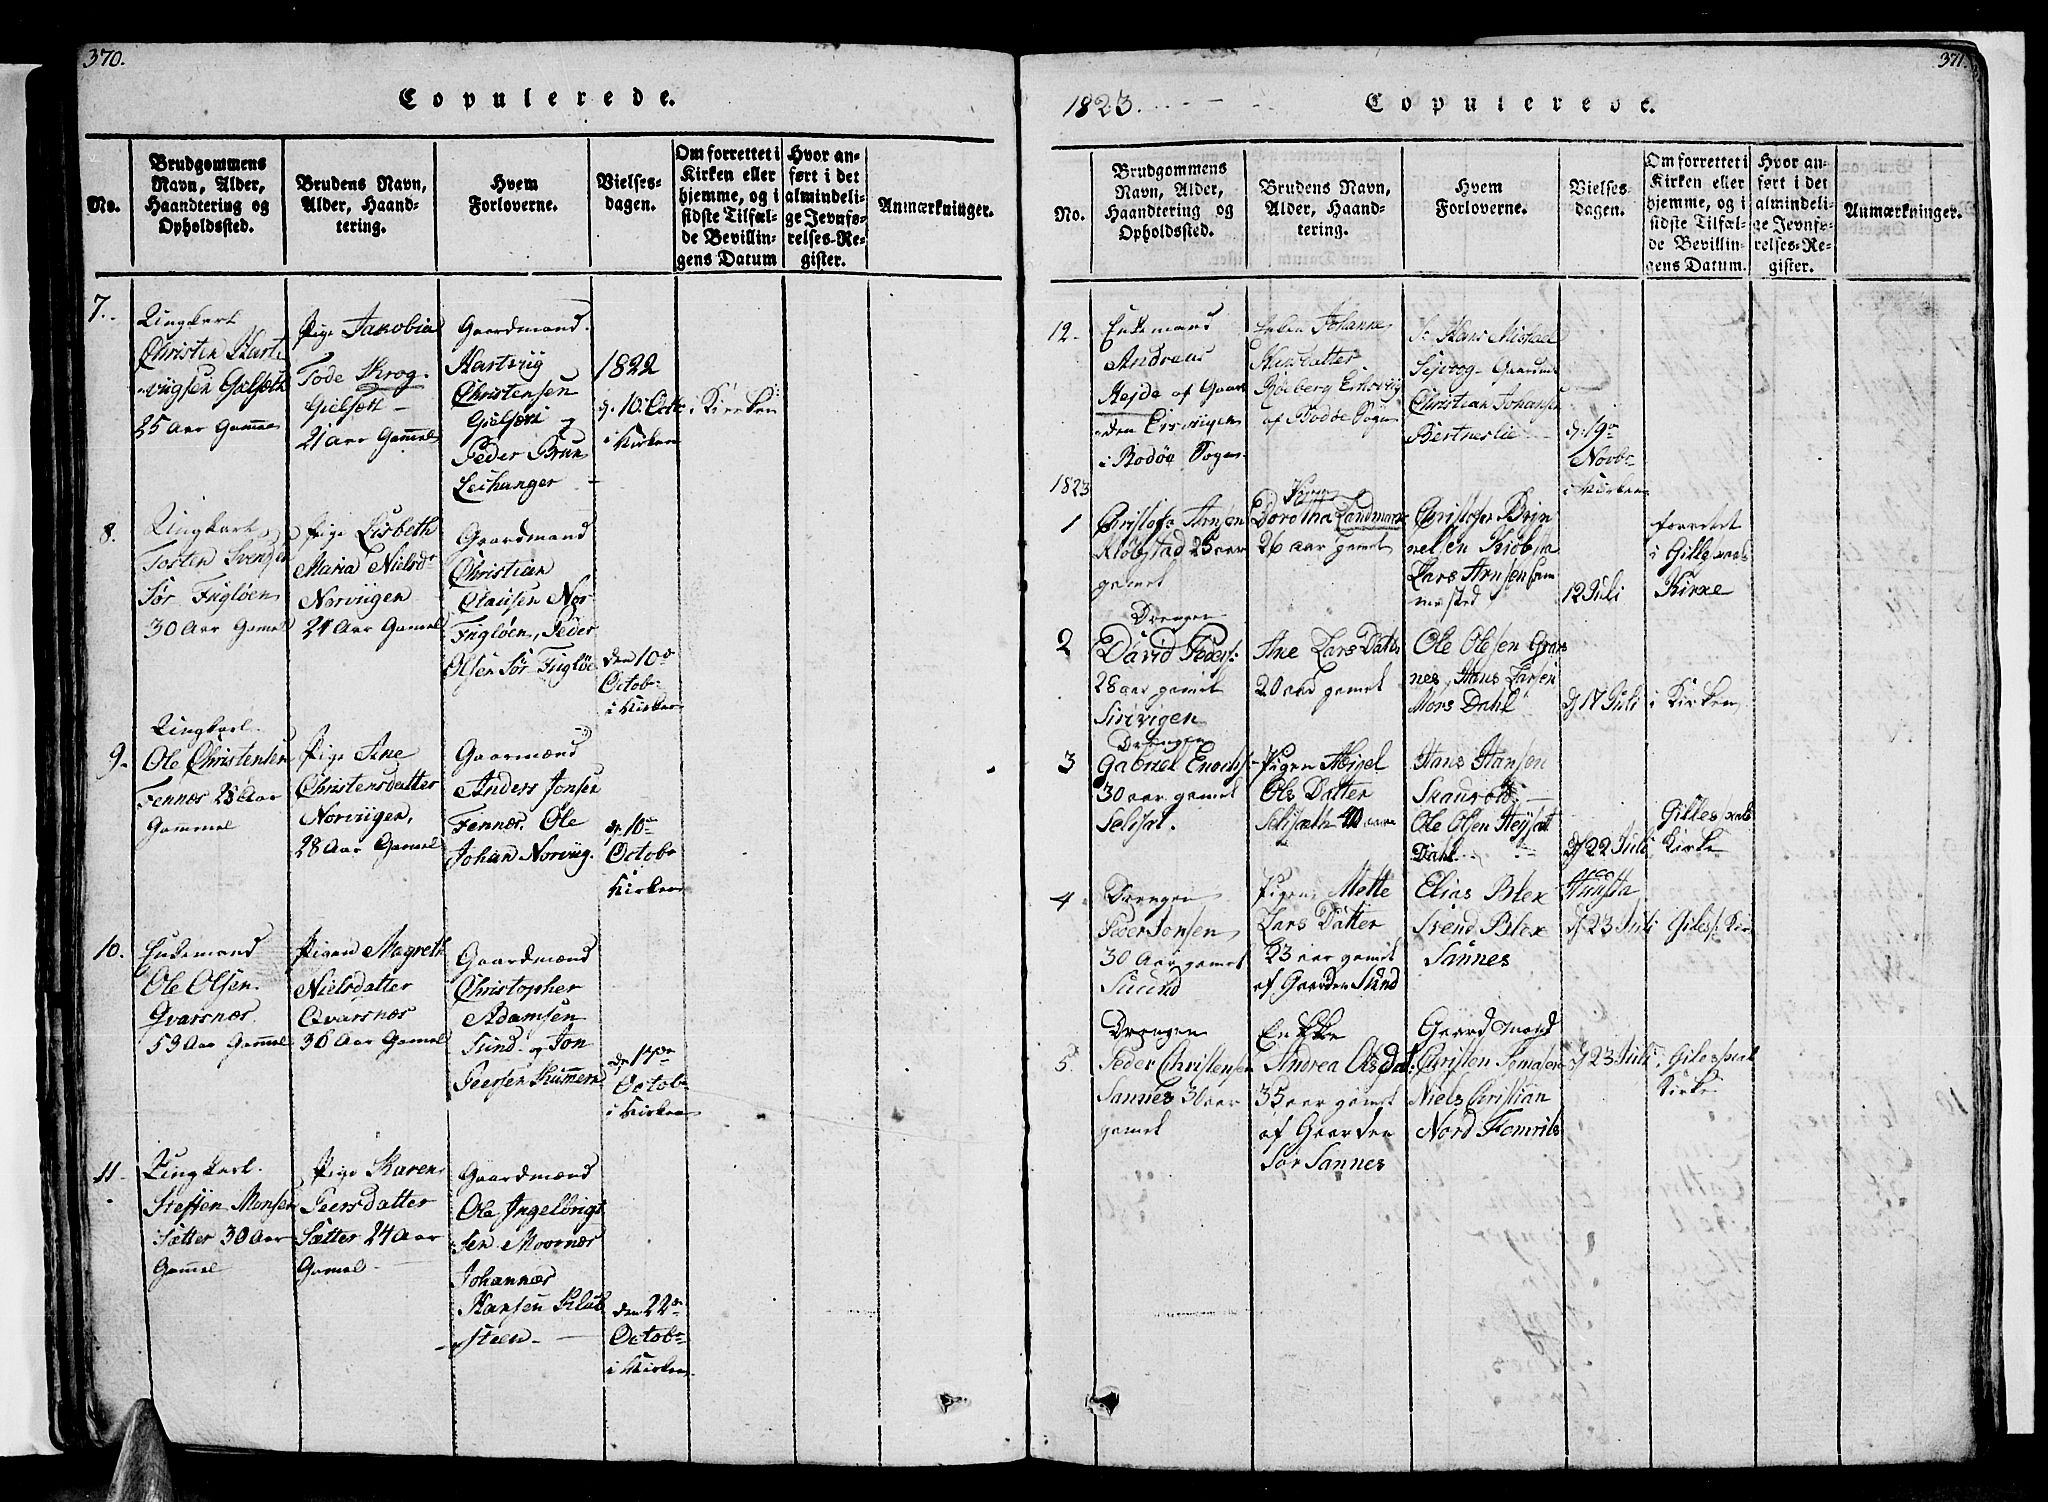 370.
Copulerede.
No.
Brudgommens
Navn, Alder,
Haandtering og
Opholdssted.
Brudens Navn,
Alder, Haand-
tering.
Hvem
Forloverne.
Vielses-
dagen.
Om forrettet i
Kirken eller
hjemme, og i
sidste Tilfæl-
de Bevillin-
gens Datum
Hvor an-
ført i det
almindeli-
ge Jevnfø-
relses-Re-
gister.
Anmærkninger.
7.
Ungkarl
Christen Hart-
vigsen
25 Aar Gammel
Pige Jakobia
Tode Krog
21 Aar Gammel
Gaardmand
Hartvig
Christensen
og
Peder Brun
Leihanger
1822
d. 10de Octb.
i Kirken
i Kirken
8.
Ungkarl
Tosten Svendsen
Sör Fugløen
30 Aar Gamel
Pige Lisbeth
Maria Nielsd.
Norviigen
21 Aar Gamel
Gaardmand
Christian
Olausen Nor-
Fugløen, Peder
Olsen Sør Fugløe
den 10de
Octob.
i Kirken
9.
Ungkarl
Ole Christensen
Fennæs 28 Aar
Gammel
Pige Ane
Christensdatter
Norviigen,
28 Aar Gamel
Gaarmænd
Anders Jonsen
Fennæs, Ole
Johan Norviig.
d. 10de
Octobr
i Kirken
10.
Enkemand
Ole Olsen
Qvarsnæs
53 Aar Gammel
Pigen Magreth
Nielsdatter
Qvarsnæs
36 Aar Gamel
Gaardmænd
Christopher
Adamsen
Sund og Jon
Peersen
Octob
i Kirken
11.
Ungkarl
Steffen Monsen
Sætter 30 Aar
Gamel
Pige Karen
Peersdatter
Sætter 24 Aar
Gamel
Gaardmænd
Ole Ingelbrigt-
sen Moornæs
Johannæs
Hansen Klub-
steen
den 22de
Octob
i Kirken
371.
1823.
Copulerede.
No.
Brudgommens
Navn, Alder,
Haandtering og
Opholdssted.
Brudens Navn,
Alder, Haand-
tering.
Hvem
Forloverne.
Vielses-
dagen.
Om forrettet i
Kirken eller
hjemme, og i
sidste Tilfæl-
de Bevillin-
gens Datum.
Hvor an-
ført i det
almindeli-
ge Jevnfø-
relses-Re-
gister.
Anmærkninger.
12.
Enkemand
Andreas
Hejde af Gaar-
den
i Bodøe Sogn
Johanne
af Bodøe Sogn
Hans
Christian Johansen
Bertneslie
d. 19de
Novb.
i Kirken
1823
1
Christofr Arnsen
Kløkstad 25 aar
gamel
Dorothea Landmark
26 aar gamel
Christofer Bryn-
Lars Arnsen
12 Juli
forrettet
i Gillesaals
Kirke
2
Drengen
David Peders:
28 aar gamel
Pige
Ane Lars Datter
20 aar gamel
Ole Olesen Qvars-
nes, Hans Larsen
Mørs Dahl
d 17 Juli
i Kirken
3
Drengen
Gabriel Enochs:
30 aar gamel
Selisat.
Pigen Abigel
Ols Datter
Selisæth 40 aar
Hans Hansen
Ole Olsen
Dahl
d 22 Juli
Gillesaals
Kirke
4.
Drengen
Peder Jonsen
30 Aar gamel
Suund
Pigen Mette
Lars Datter
23 aar gamel
af Gaarden Sund
Elias Blex
Svend Blex
Sannes
d 23 Juli
Giles: Kir
5.
Drengen
Peder Christensen
Sannes 30 aar
gamel
Enkke
Andrea
35 aar gamel
af Gaarden
Sør Sannes
Gaardmænd
Christen
Niels Christian
Nord
d 23 Juli
Gilesaal
Kirke